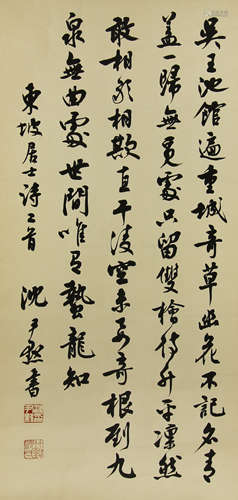 吳王池館遍重城奇草幽花不記名青
蓋一歸無覓處只留雙檜待升平凜然
敢相相欺直干凌空未要奇根到九
泉無曲處世間唯有蟄龍知
東坡居士詩二首 沈尹默書